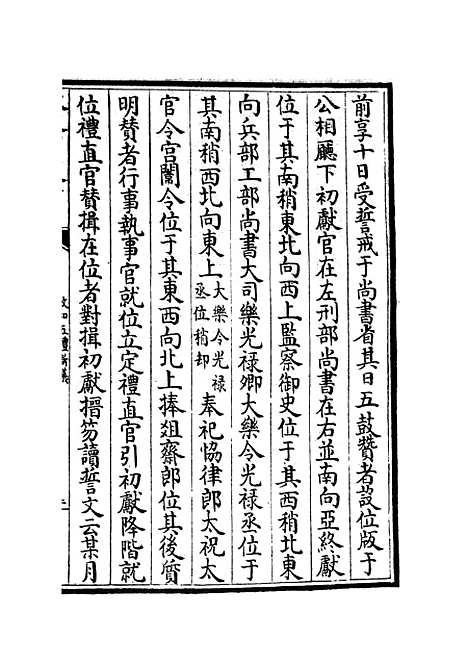 前享十日受誓戒于尚書省其日五鼓贊者設位版于
公相廳下初獻官在左刑部尚書在右並南向亞終獻
位于其南稍東北向西上監察御史位于其西稍北東
向兵部工部尚書大司樂光祿卿大樂令光祿丞位于
其南稍西北向東上大樂令光祿丞位稍却奉祀恊律郎太祝太
官令宫闈令位于其東西向北上捧俎齋郎位其後質
明贊者行事執事官就位立定禮直官引初獻降階就
位禮直官贊揖在位者對揖初獻搢笏讀誓文云某月
政和五禮新儀